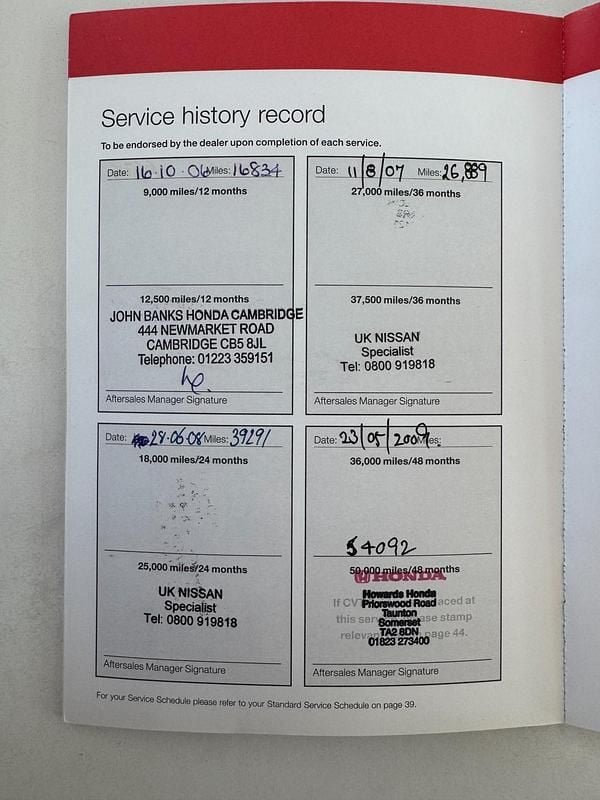 Service history record
To be endorsed by the dealer upon completion of each service.
Date: 16·10·06 Miles: 16834
9,000 miles/12 months
12,500 miles/12 months
JOHN BANKS HONDA CAMBRIDGE
444 NEWMARKET ROAD
CAMBRIDGE CB5 8JL
Telephone: 01223 359151
Aftersales Manager Signature
Date: 11/8/07 Miles: 26,889
27,000 miles/36 months
37,500 miles/36 months
UK NISSAN
Specialist
Tel: 0800 919818
Aftersales Manager Signature
Date: 28·06·08 Miles: 39291
18,000 miles/24 months
25,000 miles/24 months
UK NISSAN
Specialist
Tel: 0800 919818
Aftersales Manager Signature
Date: 23/05/2009 Miles:
36,000 miles/48 months
54092
50,000 miles/48 months
HONDA
Howards Honda
If CVT aced at
Priorswood Road
Taunton
this serv ase stamp
Somerset
TA2 8DN
relevan page 44.
01823 273400
Aftersales Manager Signature
For your Service Schedule please refer to your Standard Service Schedule on page 39.